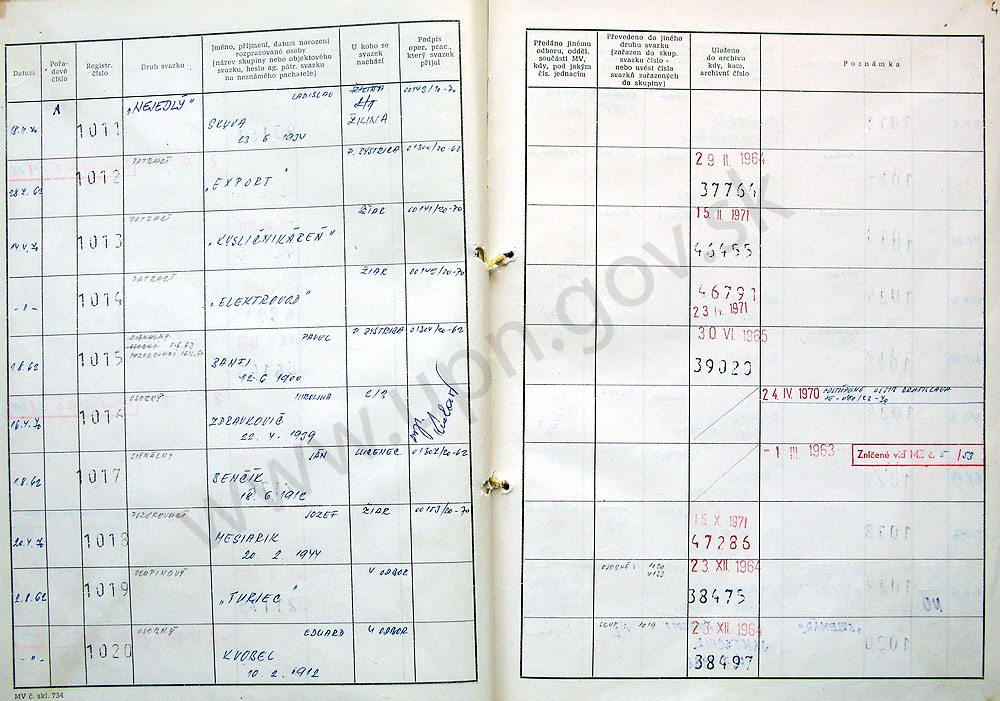 4
Datum
Pořadové číslo
Registr. číslo
Druh svazku
Jméno, příjmení, datum narození
rozpracované osoby
(název skupiny nebo objektového
svazku, heslo ag. pátr. svazku
na neznámého pachatele)
U koho se
svazek
nachází
Podpis
oper. prac.,
který svazek
přijal
Předáno jinému
odboru, odděl.
součásti MV,
kdy, pod jakým
čís. jednacím
Převedeno do jiného
druhu svazku
(zařazen do skup.
svazku číslo -
nebo uvést čísla
svazků zařazených
do skupiny)
Uloženo
do archivu
kdy, kam,
archivní číslo
Poznámka
A
1011
„NEJEDLÝ"
LADISLAV
SKUVA
23 6 1934
ŽILINA
ŽILINA
00142/20-70
28.2.62
1012
„EXPORT"
B. BYSTRICA
01300/20-62
29 II. 1964
37764
1013
„KYSLIČNIKÁREŇ"
ŽIAR
00141/20-70
15. II. 1971
46455
- " -
1014
„ELEKTROVOD"
ŽIAR
00142/20-70
46791
23 IV. 1971
1.8.62
1015
POZOROVACÍ
PAVOL
BANTI
12. 6 1900
B. BISTRICA
01304/20-62
30 VI. 1965
39020
16.4.70
1016
OSOBNÝ
ZDRAVKOVIČ
22. 4. 1939
24. IV. 1970
BRATISLAVA
1.8.62
1017
SIGNÁLNY
JÁN
BENČÍK
18. 6. 1912
LUČENEC
01302/20-62
- 1 III 1963 -
Zničené viď MZ č. 5 / 53
20.4.70
1018
POZOROVACÍ
JOZEF
MESIARIK
20. 2. 1944
ŽIAR
00153/20-70
15. X. 1971
47286
2.8.62
1019
SKUPINOVÝ
„TURIEC"
4 ODBOR
OSOBNÉ: 1020
23 XII. 1964
38475
- " -
1020
OSOBNÝ
EDUARD
KVOBEL
10. 2. 1912
4 ODBOR
SKUP. 1019
23. XII. 1964
38497
MV č. skl. 734
www.upn.gov.sk